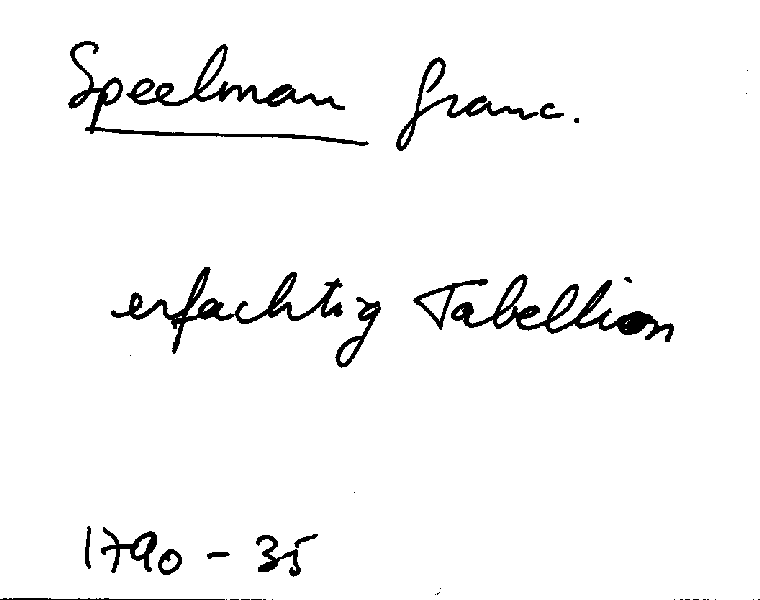 Speelman franc.
erfachtig Tabellion
1790 - 35